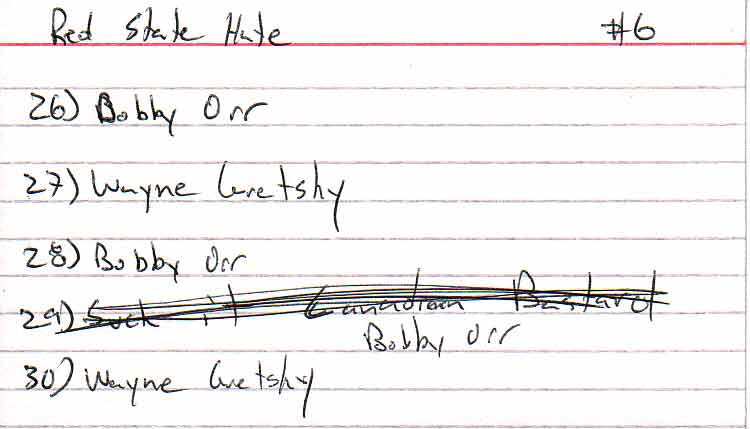 Red State Hate #6
26) Bobby Orr
27) Wayne Gretshy
28) Bobby Orr
29) Suck it Canadian Bastard
Bobby Orr
30) Wayne Gretshy